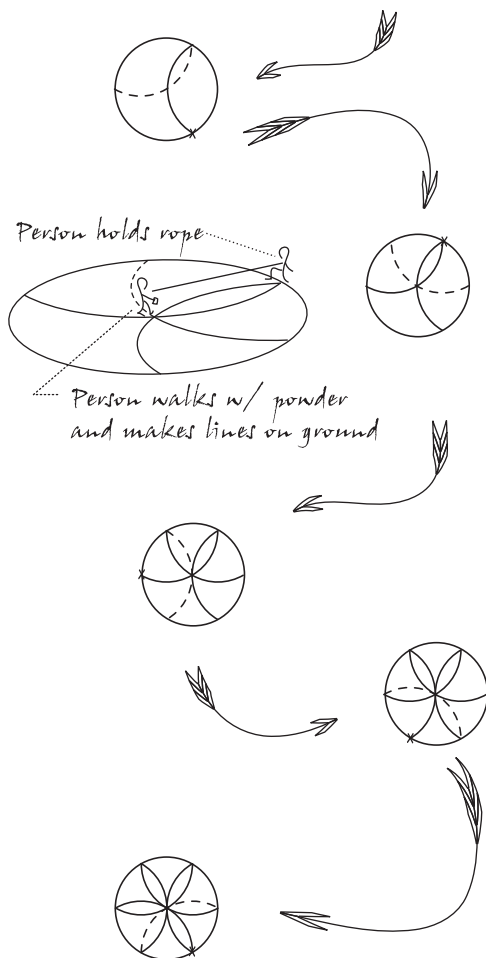 Person holds rope
Person walks w/ powder
and makes lines on ground